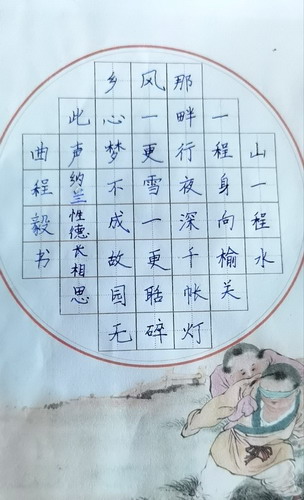 山一程水
一程身向榆关
那畔行夜深千帐灯
风一更雪一更聒碎
乡心梦不成故园无
此声纳兰性德长相思
曲程毅书